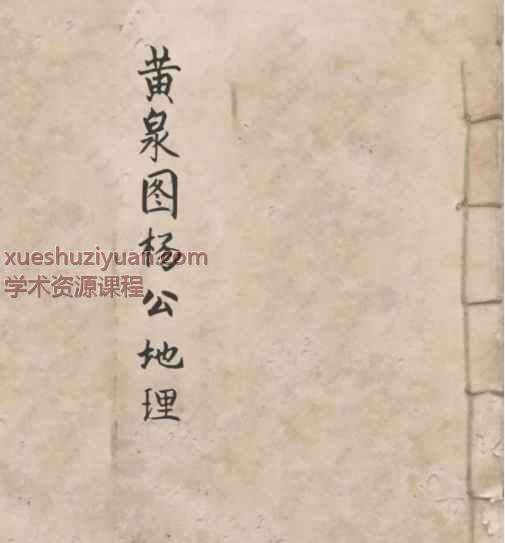 黄泉图杨公地理
xueshuziyuan.com
学术资源课程